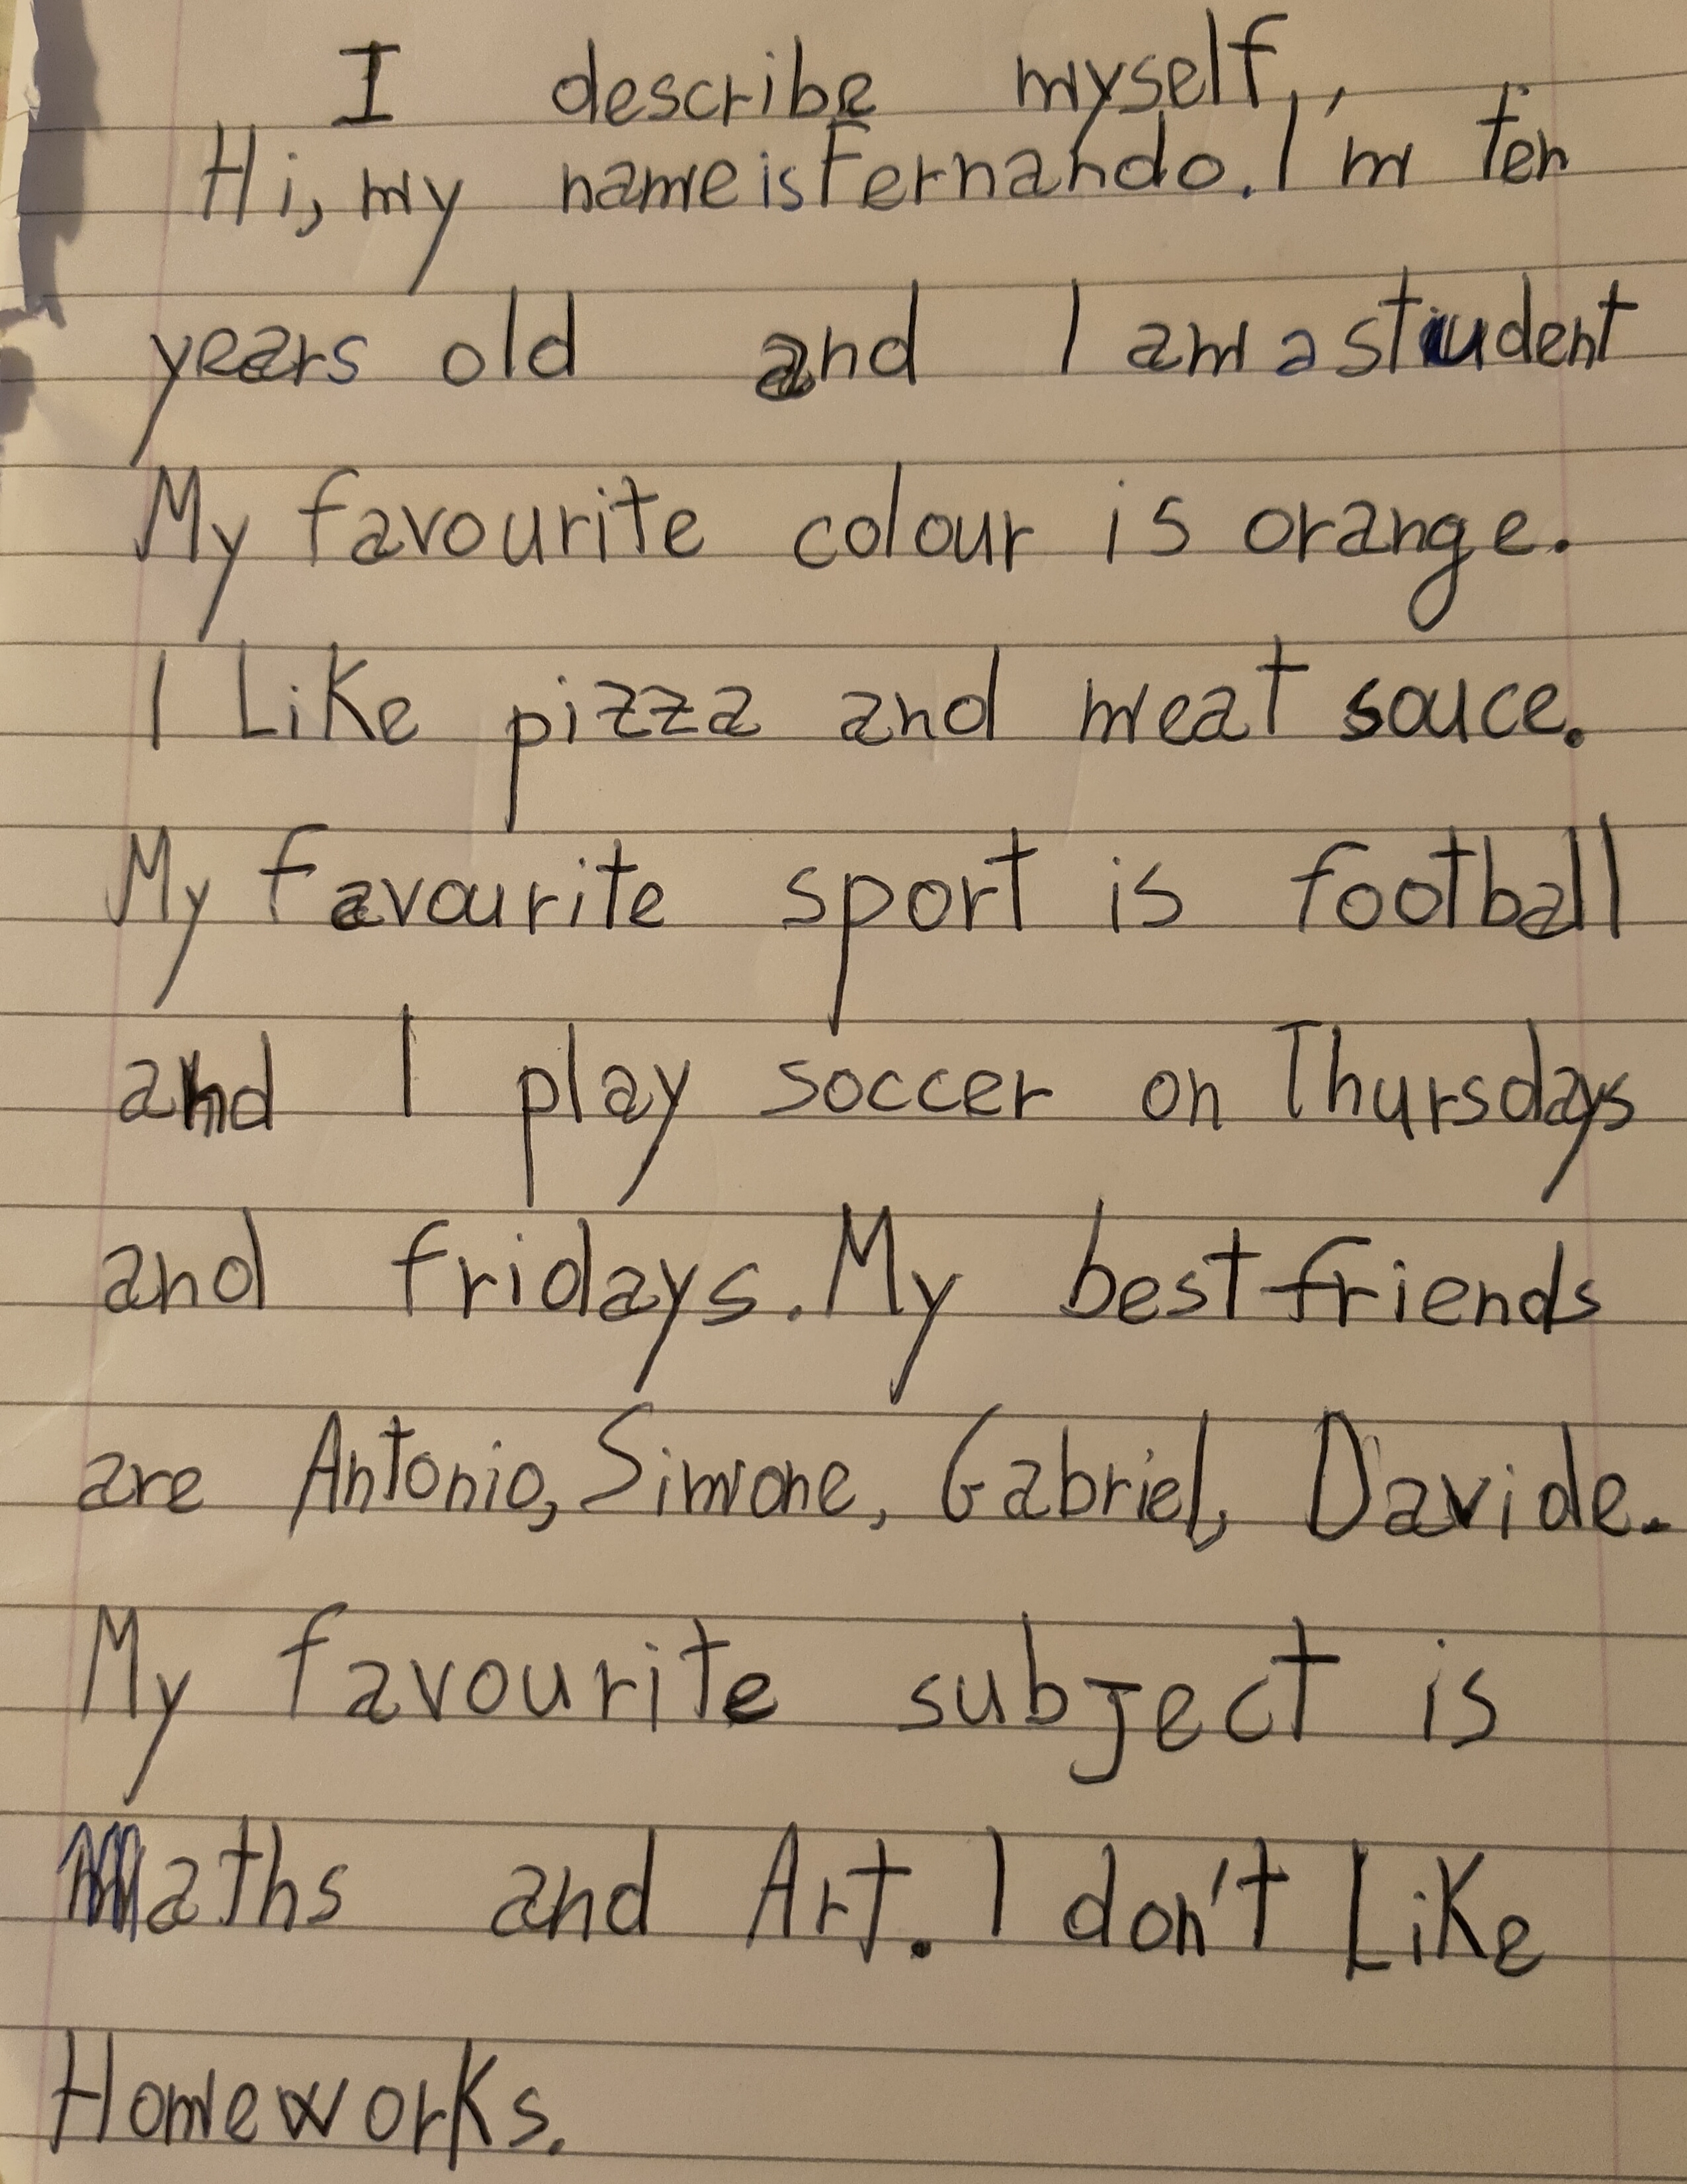 I describe myself,,
Hi, my name is Fernando. I'm ten
years old and I am a student
My favourite colour is orange.
I Like pizza and meat souce.
My favourite sport is football
and I play soccer on Thursdays
and fridays. My best friends
are Antonio, Simone, Gabriel, Davide.
My favourite subject is
Maths and Art. I don't Like
Homeworks.